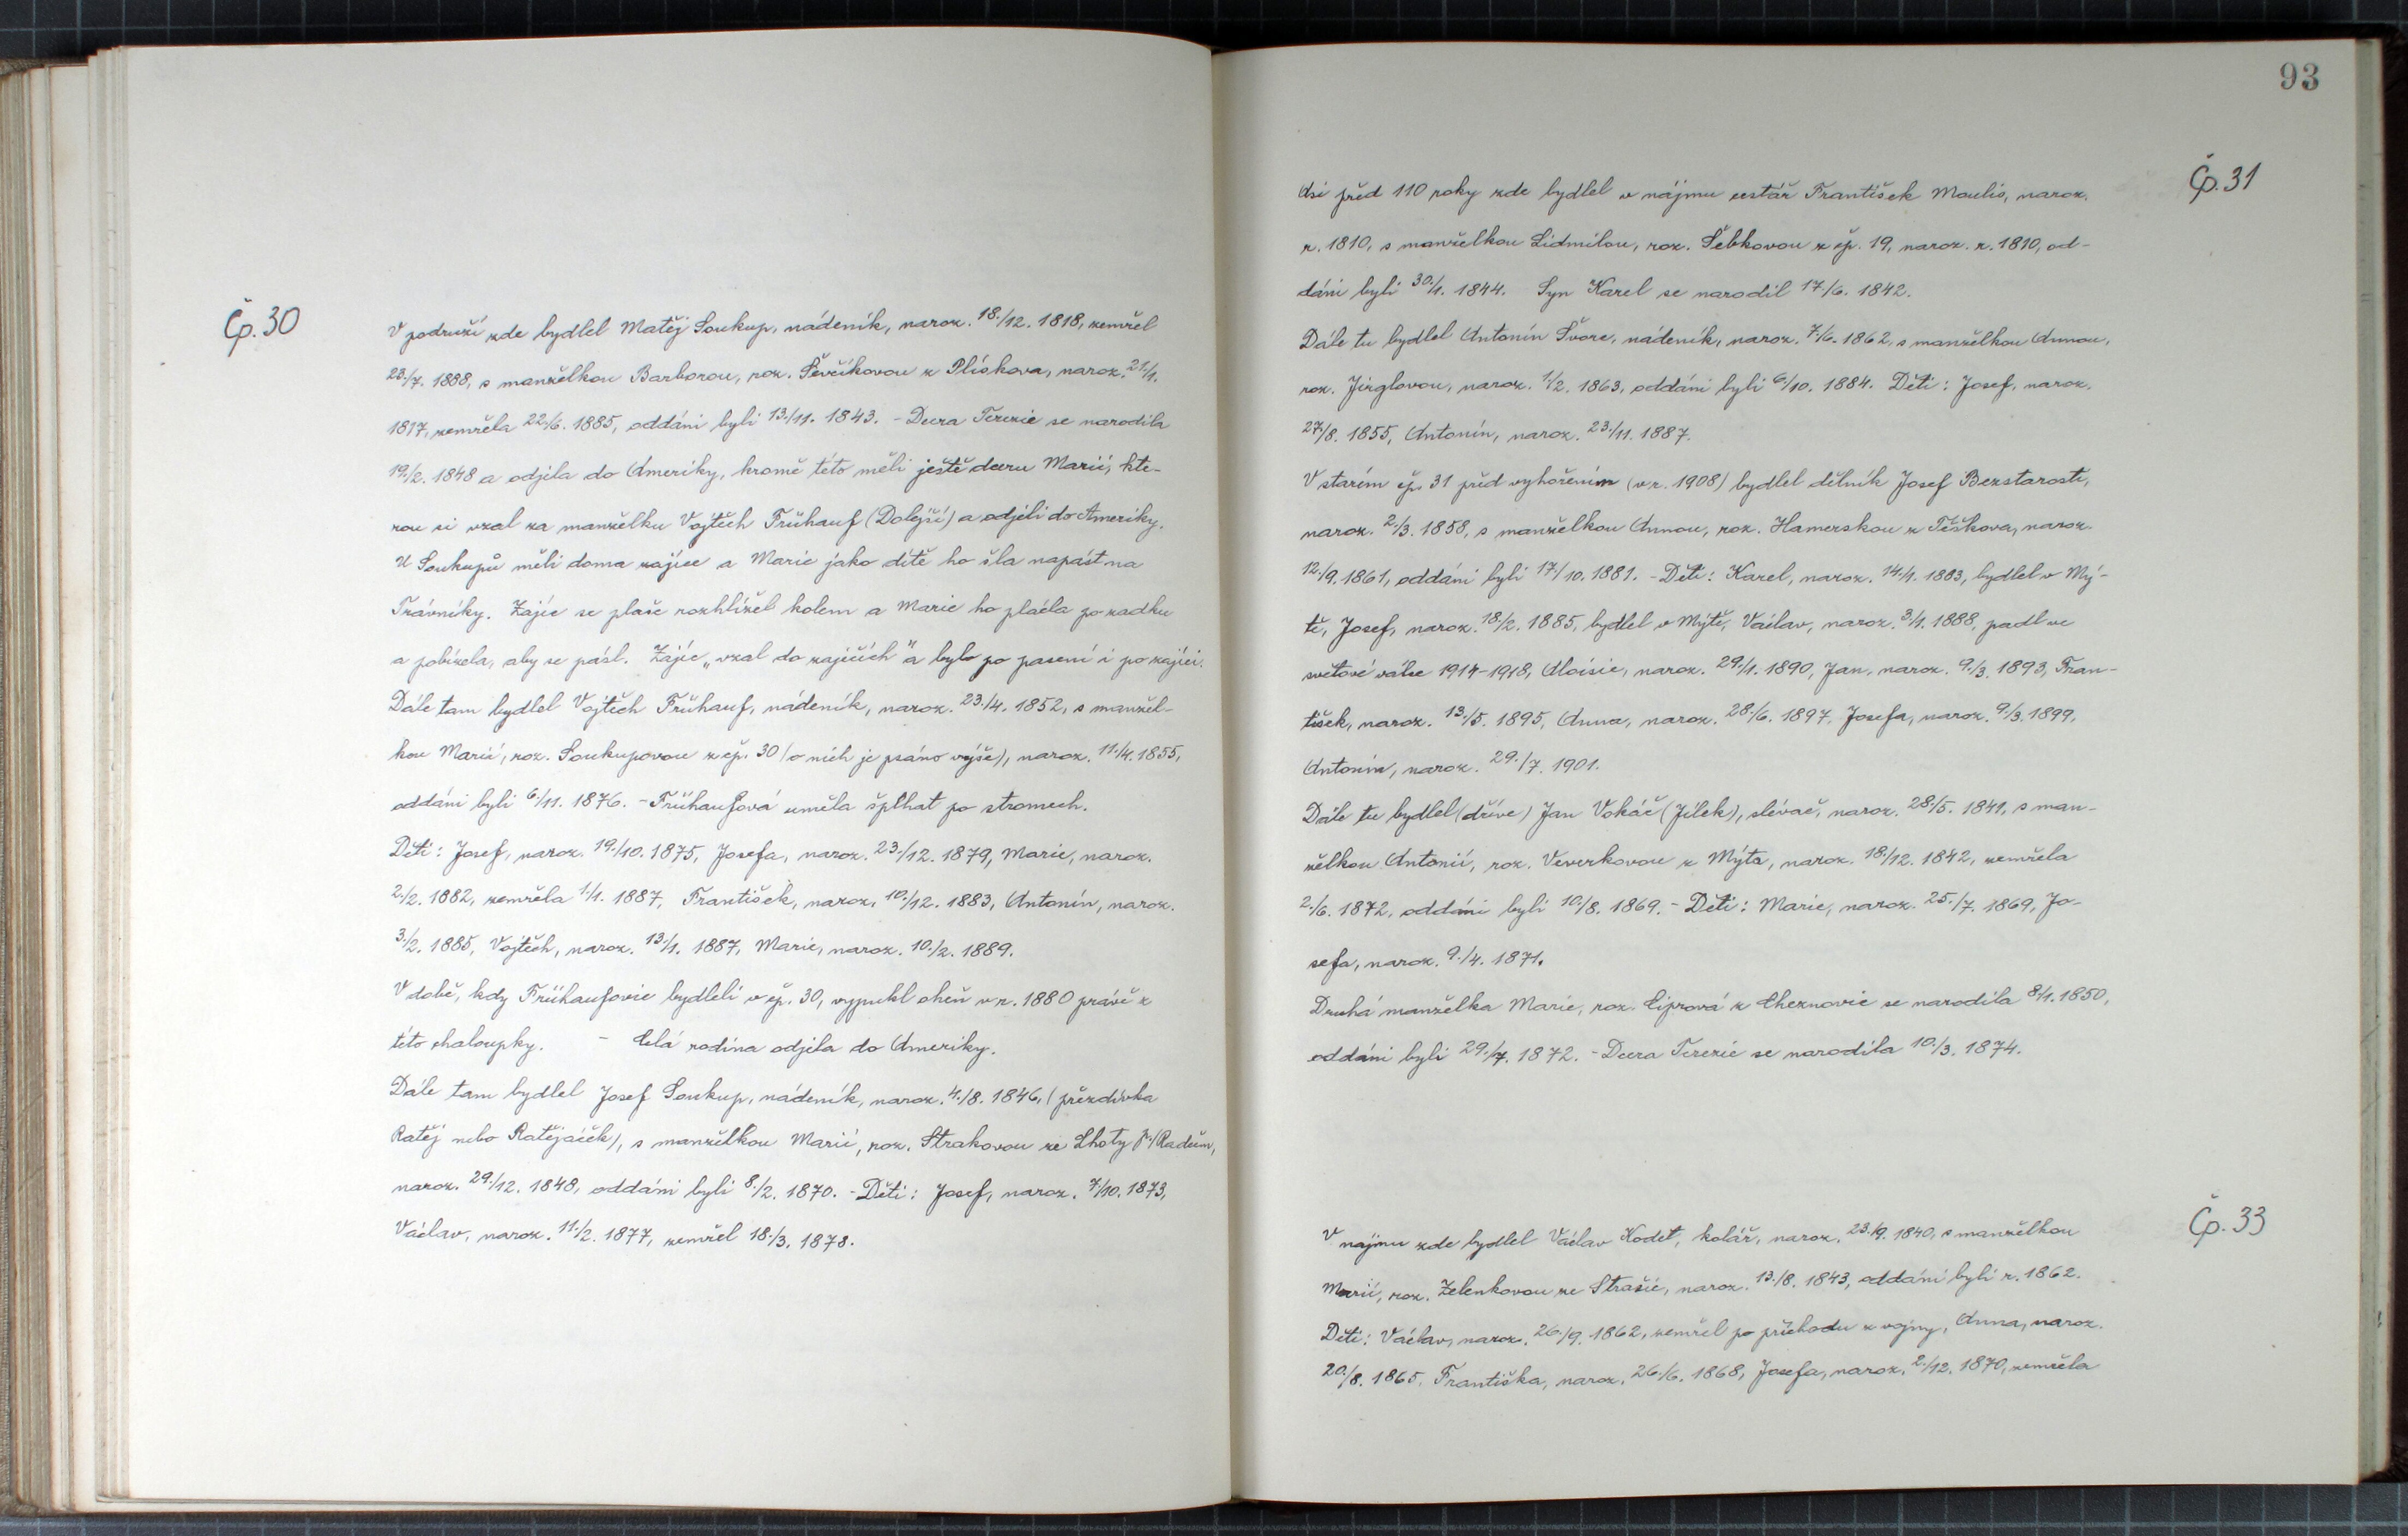 Čp. 30
V podruží zde bydlel Matěj Soukup, nádeník, naroz. 18./12. 1818, zemřel
23./7. 1888, s manželkou Barborou, roz. Ševčíkovou z Plískova, naroz. 21./1.
1817, zemřela 22./6. 1885, oddáni byli 13./11. 1843. - Dcera Terezie se narodila
19./2. 1848 a odjela do Ameriky, kromě této měli ještě dceru Marii, kte-
rou si vzal za manželku Vojtěch Frühauf (Dolejší) a odjeli do Ameriky.
U Soukupů měli doma zajíce a Marie jako dítě ho šla napást na
Trávníky. Zajíc se plaše rozhlížel kolem a Marie ho plácla po zadku
a pobízela, aby se pásl. Zajíc „vzal do zaječích" a bylo po pasení i po zajíci.
Dále tam bydlel Vojtěch Frühauf, nádeník, naroz. 23./4. 1852, s manžel-
kou Marií, roz. Soukupovou z čp. 30 (o nich je psáno výše), naroz. 11./4. 1855,
oddáni byli 6./11. 1876. - Frühaufová uměla šplhat po stromech.
Děti: Josef, naroz. 19./10. 1875, Josefa, naroz. 23./12. 1879, Marie, naroz.
2./2. 1882, zemřela 1./1. 1887, František, naroz. 10./12. 1883, Antonín, naroz.
3./2. 1885, Vojtěch, naroz. 13./1. 1887, Marie, naroz. 10./2. 1889.
V době, kdy Frühaufovic bydleli v čp. 30, vypukl oheň v r. 1880 právě z
této chaloupky. - Celá rodina odjela do Ameriky.
Dále tam bydlel Josef Soukup, nádeník, naroz. 4./8. 1846, (přezdívka
Ratěj nebo Ratějáček), s manželkou Marií, roz. Strakovou ze Lhoty p./Radčem,
naroz. 29./12. 1848, oddáni byli 8./2. 1870. - Děti: Josef, naroz. 7./10. 1873,
Václav, naroz. 11./2. 1877, zemřel 18./3. 1878.
93
Čp. 31
Asi před 110 roky zde bydlel v nájmu cestář František Moulis, naroz.
r. 1810, s manželkou Lidmilou, roz. Šebkovou z čp. 19, naroz. r. 1810, od-
dáni byli 30./1. 1844. Syn Karel se narodil 17./6. 1842.
Dále tu bydlel Antonín Švorc, nádeník, naroz. 7./6. 1862, s manželkou Annou,
roz. Jirglovou, naroz. 1./2. 1863, oddáni byli 6./10. 1884. Děti: Josef, naroz.
27./8. 1855, Antonín, naroz. 23./11. 1887.
V starém čp. 31 před vyhořením (v r. 1908) bydlel dělník Josef Bezstarosti,
naroz. 2./3. 1858, s manželkou Annou, roz. Hamerskou z Těškova, naroz.
12./9. 1861, oddáni byli 17./10. 1881. - Děti: Karel, naroz. 14./1. 1883, bydlel v Mý-
tě, Josef, naroz. 18./2. 1885, bydlel v Mýtě, Václav, naroz. 3./1. 1888, padl ve
světové válce 1914-1918, Aloisie, naroz. 29./1. 1890, Jan, naroz. 9./3. 1893, Fran-
tišek, naroz. 13./5. 1895, Anna, naroz. 28./6. 1897, Josefa, naroz. 9./3. 1899,
Antonín, naroz. 29./7. 1901.
Dále tu bydlel (dříve) Jan Vokáč (Jílek), slévač, naroz. 28./5. 1841, s man-
želkou Antonií, roz. Veverkovou z Mýta, naroz. 18./12. 1842, zemřela
2./6. 1872, oddáni byli 10./8. 1869. - Děti: Marie, naroz. 25./7. 1869, Jo-
sefa, naroz. 9./4. 1871.
Druhá manželka Marie, roz. Ciprová z Cheznovic se narodila 8./1. 1850,
oddáni byli 29./7. 1872. - Dcera Terezie se narodila 10./3. 1874.
Čp. 33
V nájmu zde bydlel Václav Kodet, kolář, naroz. 23./9. 1840, s manželkou
Marií, roz. Zelenkovou ze Strašic, naroz. 13./8. 1843, oddáni byli r. 1862.
Děti: Václav, naroz. 26./9. 1862, zemřel po příchodu z vojny, Anna, naroz.
20./8. 1865, Františka, naroz. 26./6. 1868, Josefa, naroz. 2./12. 1870, zemřela